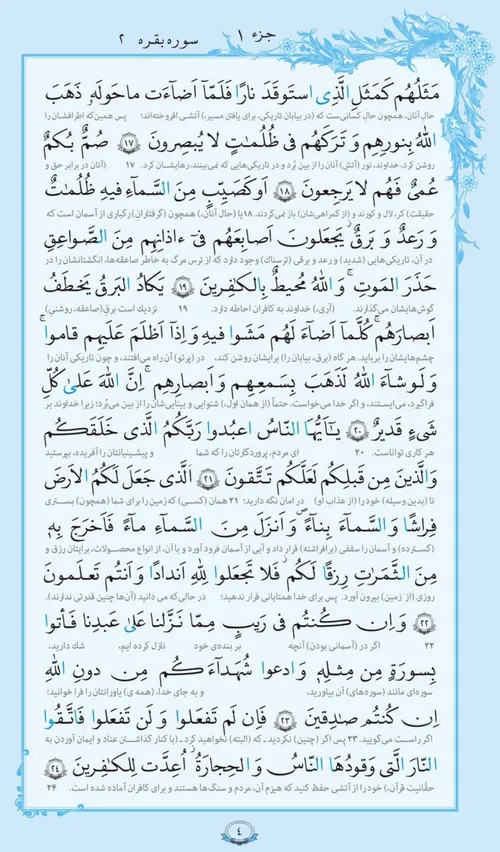 جزء ۱
سوره بقره ۲
مَثَلُهُم كَمَثَلِ الَّذِی استَوقَدَ نارًا فَلَمّآ اَضآءَت ماحَولَهۥ ذَهَبَ
حال آنان، همچون حال کسانی‌ست که (در بیابان تاریکی، برای یافتن مسیر،) آتشی افروخته‌اند؛ پس همین‌که اطرافشان را
اللهُ بِنورِهِم وَ تَرَكَهُم فی ظُلُماتٍ لا یُبصِرونَ ۱۷ صُمٌّ بُكمٌ
روشن کرد، خداوند، نور (آتش) آنان را از بین بُرد و در تاریکی‌هایی که نمی‌بینند، رهایشان کرد. ۱۷ (آنان در برابر حق و
عُمیٌ فَهُم لا یَرجِعونَ ۱۸ اَو كَصَیِّبٍ مِنَ السَّمآءِ فیهِ ظُلُماتٌ
حقیقت) کر، لال و کورند و (از گمراهی‌شان) باز نمی‌گردند. ۱۸ یا (حال آنان،) همچون (گرفتارانِ) رگباری از آسمان است که
وَ رَعدٌ وَ بَرقٌ یَجعَلونَ اَصابِعَهُم فی ءاذانِهِم مِنَ الصَّواعِقِ
در آن، تاریکی‌هایی (شدید) و رعد و برقی (ترسناک) وجود دارد که از ترس مرگ به خاطر صاعقه‌ها، انگشتانشان را در
حَذَرَ المَوتِ ۚ وَ اللهُ مُحیطٌ بِالكافِرینَ ۱۹ یَكادُ البَرقُ یَخطَفُ
گوش‌هایشان می‌گذارند. (آری،) خداوند به کافران احاطه دارد. ۱۹ نزدیک است برقِ (صاعقه، روشنیِ)
اَبصارَهُم ۖ كُلَّمآ اَضآءَ لَهُم مَشَوا فیهِ وَ اِذآ اَظلَمَ عَلَیهِم قاموا ۚ
چشم‌هایشان را برباید. هر گاه (برق، بیابان را) برایشان روشن کند، در (پرتو) آن راه می‌افتند، و چون تاریکی آنان را
وَ لَو شآءَ اللهُ لَذَهَبَ بِسَمعِهِم وَ اَبصارِهِم ۚ اِنَّ اللهَ عَلیٰ كُلِّ
فراگیرد، می‌ایستند، و اگر خدا می‌خواست، حتماً (از همان اول،) شنوایی و بینایی‌شان را از بین می‌بُرد؛ زیرا خداوند بر
شَیءٍ قَدیرٌ ۲۰ یٰۤاَیُّهَا النّاسُ اعبُدوا رَبَّكُمُ الَّذی خَلَقَكُم
هر کاری تواناست. ۲۰ ای مردم، پروردگارتان را که شما و پیشینیانتان را آفریده، بپرستید
وَالَّذینَ مِن قَبلِكُم لَعَلَّكُم تَتَّقونَ ۲۱ اَلَّذی جَعَلَ لَكُمُ الاَرضَ
تا (بدین وسیله) خود را (از عذاب او) در امان نگه دارید؛ ۲۱ همان (کسی) که زمین را برای شما (همچون) بستری
فِراشًا وَ السَّمآءَ بِنآءً وَ اَنزَلَ مِنَ السَّمآءِ مآءً فَاَخرَجَ بِهۦ
(گسترده) و آسمان را سقفی (برافراشته) قرار داد و آبی از آسمان فرود آورد و با آن، از انواع محصولات، برایتان رزق و
مِنَ الثَّمَراتِ رِزقًا لَكُم ۖ فَلا تَجعَلوا لِلّٰهِ اَندادًا وَ اَنتُم تَعلَمونَ
روزی (از زمین) بیرون آورد. پس برای خدا همتایانی قرار ندهید؛ در حالی‌که می دانید (آن‌ها چنین قدرتی ندارند).
۲۲ وَ اِن كُنتُم فی رَیبٍ مِمّا نَزَّلنا عَلیٰ عَبدِنا فَأتوا
۲۲ اگر در (آسمانی بودن) آنچه بر بنده‌ی خود نازل کرده ایم، شک دارید،
بِسورَةٍ مِن مِثلِهۦ وَادعوا شُهَدآءَكُم مِن دونِ اللهِ
سوره‌ای مانند (سوره‌های) آن بیاورید، و به جای خدا، (همه ی) یاورانتان را فرا خوانید؛
اِن كُنتُم صادِقینَ ۲۳ فَاِن لَم تَفعَلوا وَ لَن تَفعَلوا فَاتَّقُوا
اگر راست می‌گویید. ۲۳ پس اگر (چنین) نکردید ـ که (البته) نخواهید کرد ـ (با کنار گذاشتن عناد و ایمان آوردن به
النّارَ الَّتی وَقودُهَا النّاسُ وَ الحِجارَةُ ۖ اُعِدَّت لِلكافِرینَ ۲۴
حقّانیت قرآن،) خود را از آتشی حفظ کنید که هیزم آن، مردم و سنگ‌ها هستند و برای کافران آماده شده است. ۲۴
٤